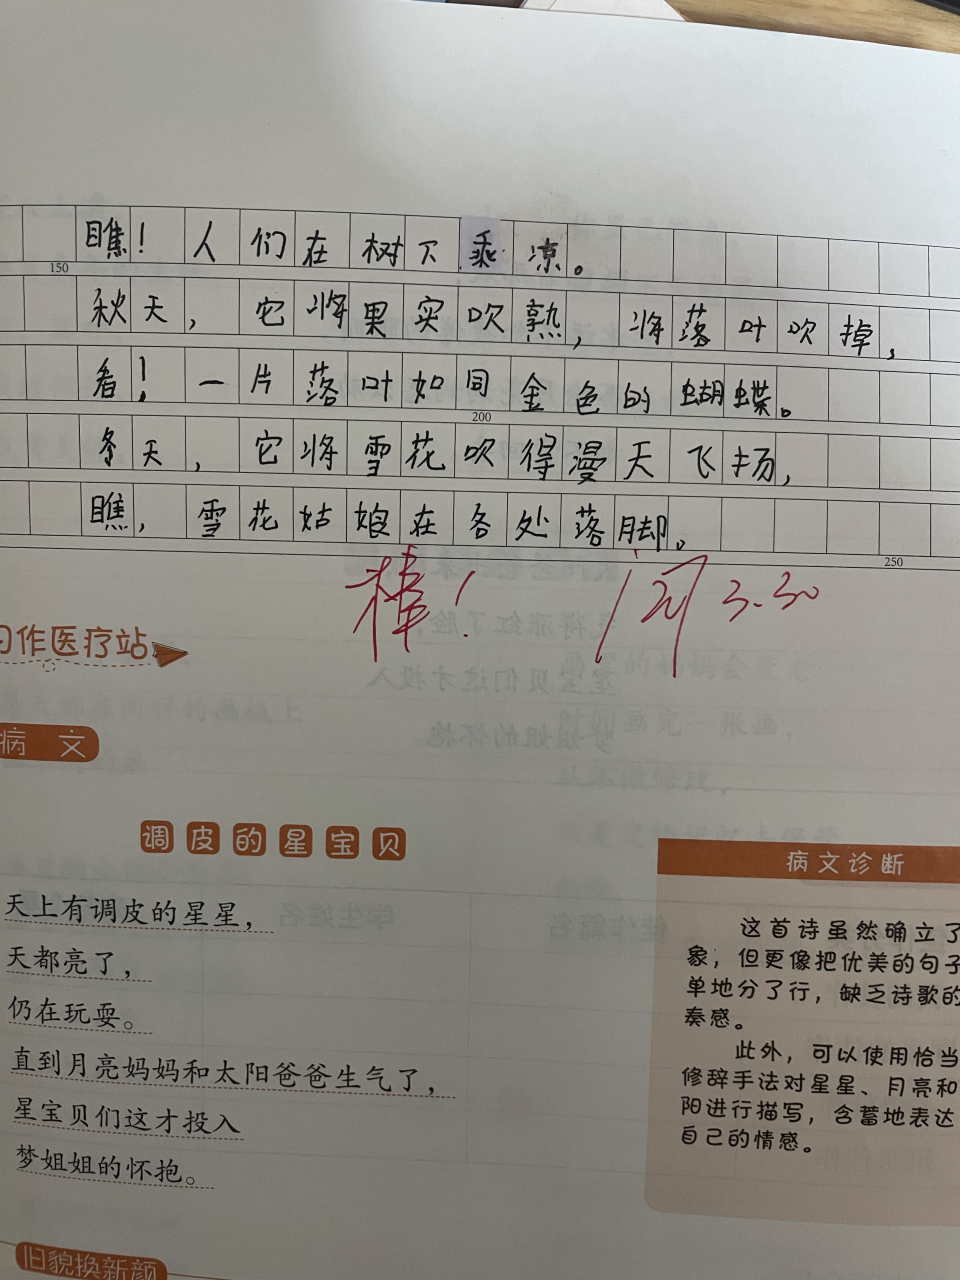 瞧！人们在树下乘凉。
150
秋天，它将果实吹熟，将落叶吹掉，
看！一片落叶如同金色的蝴蝶。
200
冬天，它将雪花吹得漫天飞扬，
瞧，雪花姑娘在各处落脚。
250
棒！
3.30
习作医疗站
病文
调皮的星宝贝
天上有调皮的星星，
天都亮了，
仍在玩耍。
直到月亮妈妈和太阳爸爸生气了，
星宝贝们这才投入
梦姐姐的怀抱。
病文诊断
这首诗虽然确立了
象，但更像把优美的句子
单地分了行，缺乏诗歌的
奏感。
此外，可以使用恰当
修辞手法对星星、月亮和
阳进行描写，含蓄地表达
自己的情感。
旧貌换新颜